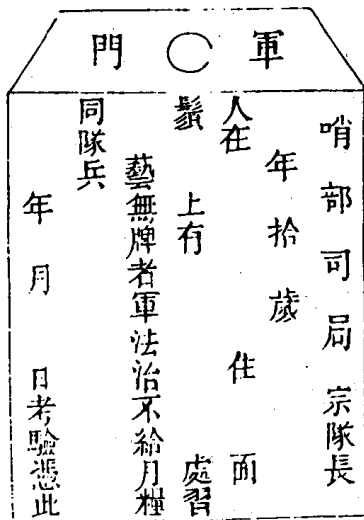 軍門
哨部司局宗隊長
年拾歲
人在住面
鬚上有處習
藝無牌者軍法治不給月糧
同隊兵
年月日考驗憑此